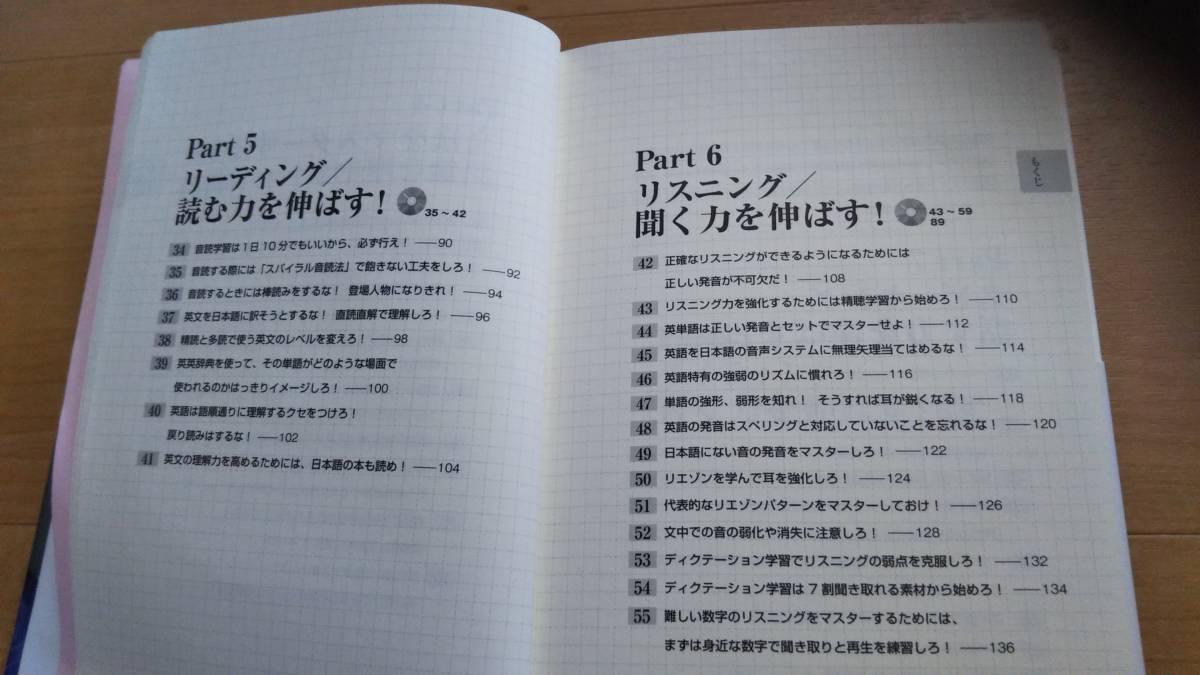 Part 5
リーディング／
読む力を伸ばす！ 35～42
34 音読学習は1日10分でもいいから、必ず行え！ ──90
35 音読する際には「スパイラル音読法」で飽きない工夫をしろ！ ──92
36 音読するときには棒読みをするな！ 登場人物になりきれ！ ──94
37 英文を日本語に訳そうとするな！ 直読直解で理解しろ！ ──96
38 精読と多読で使う英文のレベルを変えろ！ ──98
39 英英辞典を使って、その単語がどのような場面で
使われるのかはっきりイメージしろ！ ──100
40 英語は語順通りに理解するクセをつけろ！
戻り読みはするな！ ──102
41 英文の理解力を高めるためには、日本語の本も読め！ ──104
もくじ
Part 6
リスニング／
聞く力を伸ばす！ 43～59
89
42 正確なリスニングができるようになるためには
正しい発音が不可欠だ！ ──108
43 リスニング力を強化するためには精聴学習から始めろ！ ──110
44 英単語は正しい発音とセットでマスターせよ！ ──112
45 英語を日本語の音声システムに無理矢理当てはめるな！ ──114
46 英語特有の強弱のリズムに慣れろ！ ──116
47 単語の強形、弱形を知れ！ そうすれば耳が鋭くなる！ ──118
48 英語の発音はスペリングと対応していないことを忘れるな！ ──120
49 日本語にない音の発音をマスターしろ！ ──122
50 リエゾンを学んで耳を強化しろ！ ──124
51 代表的なリエゾンパターンをマスターしておけ！ ──126
52 文中での音の弱化や消失に注意しろ！ ──128
53 ディクテーション学習でリスニングの弱点を克服しろ！ ──132
54 ディクテーション学習は7割聞き取れる素材から始めろ！ ──134
55 難しい数字のリスニングをマスターするためには、
まずは身近な数字で聞き取りと再生を練習しろ！ ──136